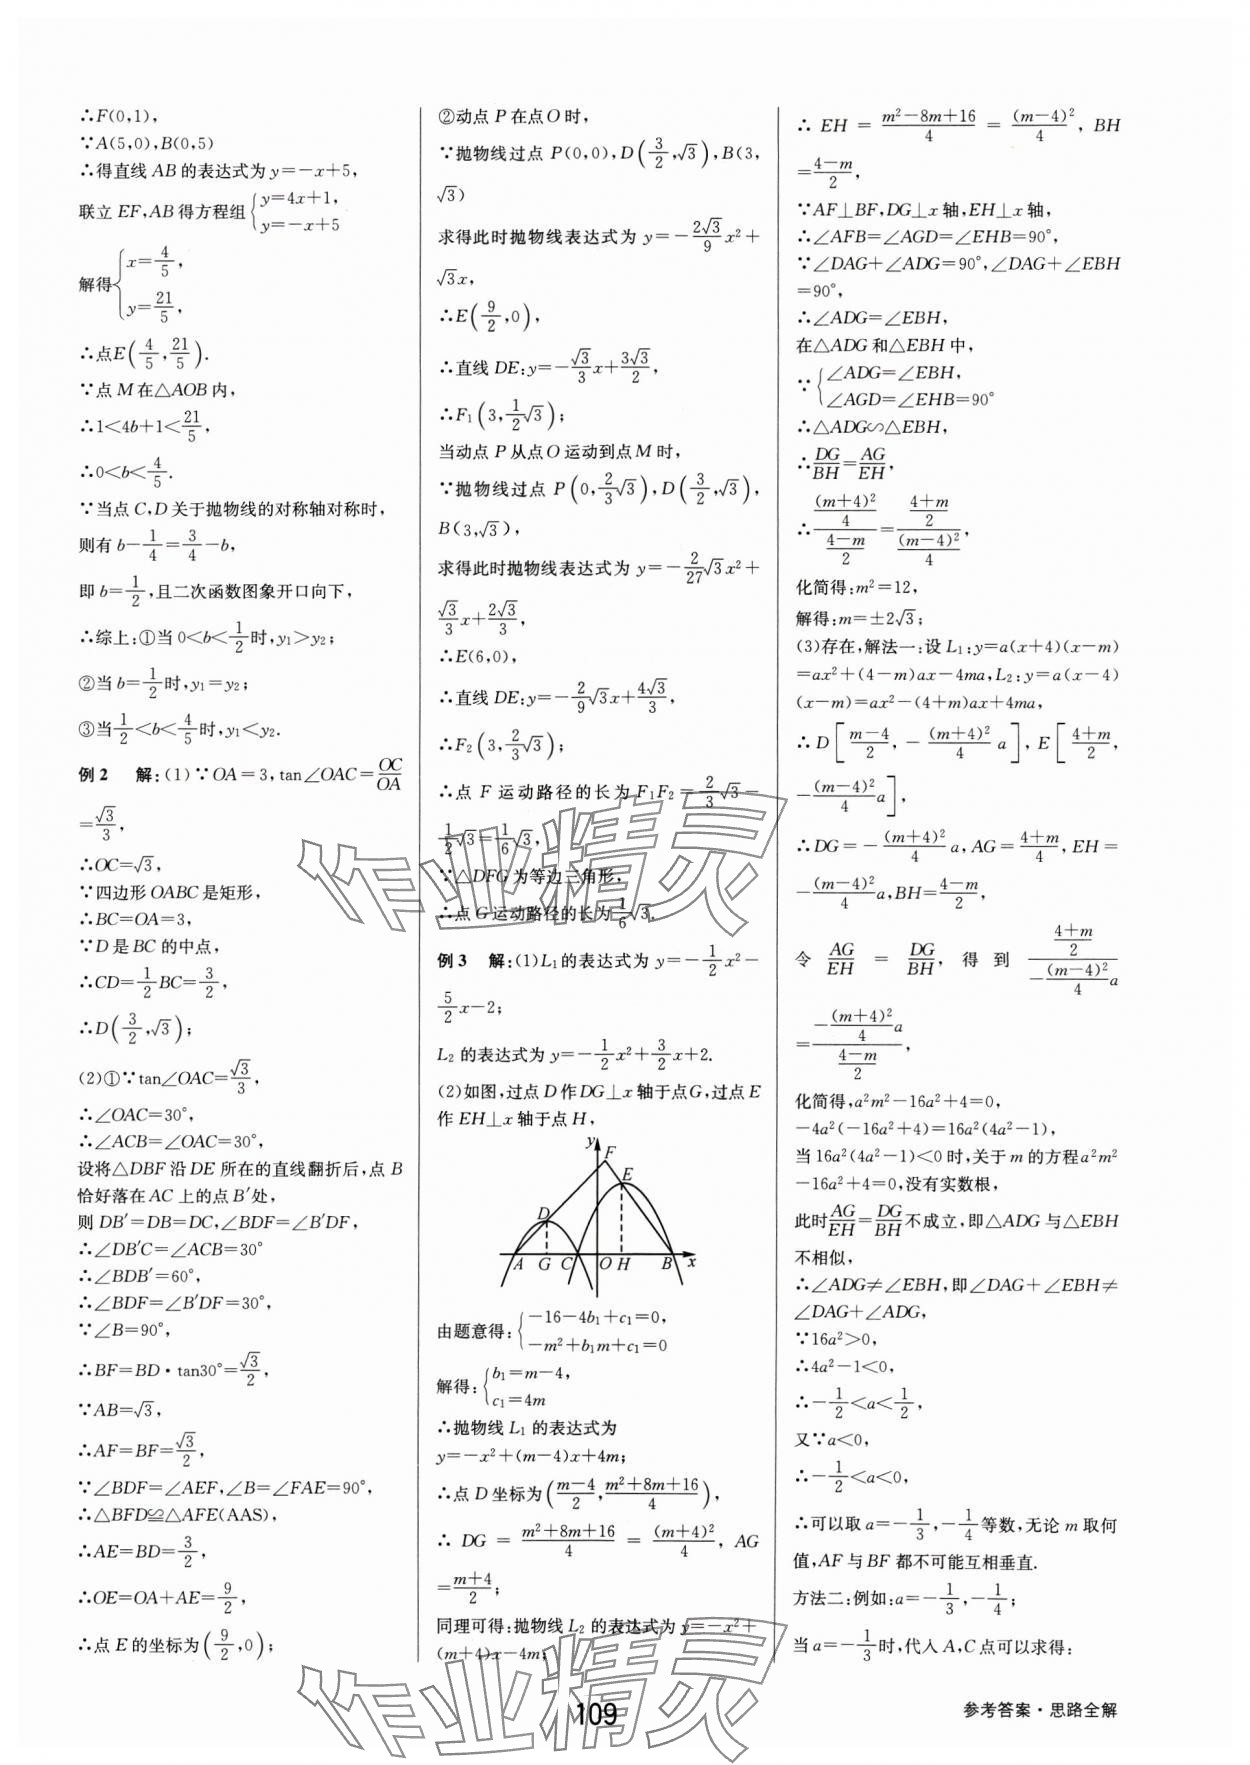 ∴F(0,1),
∵A(5,0),B(0,5)
∴得直线 AB 的表达式为 y=-x+5,
联立 EF,AB 得方程组{y=4x+1, y=-x+5
解得{x=4/5, y=21/5,
∴点E(4/5,21/5).
∵点 M 在△AOB 内,
∴1<4b+1<21/5,
∴0<b<4/5.
∵当点 C,D 关于抛物线的对称轴对称时,
则有 b-1/4=3/4-b,
即 b=1/2,且二次函数图象开口向下,
∴综上:①当 0<b<1/2时,y₁>y₂;
②当 b=1/2时,y₁=y₂;
③当1/2<b<4/5时,y₁<y₂.
例 2 解:(1)∵OA=3,tan∠OAC=OC/OA
=√3/3,
∴OC=√3,
∵四边形 OABC 是矩形,
∴BC=OA=3,
∵D 是 BC 的中点,
∴CD=1/2BC=3/2,
∴D(3/2,√3);
(2)①∵tan∠OAC=√3/3,
∴∠OAC=30°,
∴∠ACB=∠OAC=30°,
设将△DBF 沿 DE 所在的直线翻折后,点 B
恰好落在 AC 上的点 B′处,
则 DB′=DB=DC,∠BDF=∠B′DF,
∴∠DB′C=∠ACB=30°
∴∠BDB′=60°,
∴∠BDF=∠B′DF=30°,
∵∠B=90°,
∴BF=BD·tan30°=√3/2,
∵AB=√3,
∴AF=BF=√3/2,
∵∠BDF=∠AEF,∠B=∠FAE=90°,
∴△BFD≌△AFE(AAS),
∴AE=BD=3/2,
∴OE=OA+AE=9/2,
∴点 E 的坐标为(9/2,0);
②动点 P 在点 O 时,
∵抛物线过点 P(0,0),D(3/2,√3),B(3,
√3)
求得此时抛物线表达式为 y=-2√3/9x²+
√3x,
∴E(9/2,0),
∴直线 DE:y=-√3/3x+3√3/2,
∴F₁(3,1/2√3);
当动点 P 从点 O 运动到点 M 时,
∵抛物线过点 P(0,2/3√3),D(3/2,√3),
B(3,√3),
求得此时抛物线表达式为 y=-2/27√3x²+
√3/3x+2√3/3,
∴E(6,0),
∴直线 DE:y=-2/9√3x+4√3/3,
∴F₂(3,2/3√3);
∴点 F 运动路径的长为 F₁F₂=2/3√3-
1/2√3=1/6√3,
∵△DFG 为等边三角形,
∴点 G 运动路径的长为1/6√3.
例 3 解:(1)L₁ 的表达式为 y=-1/2x²-
5/2x-2;
L₂ 的表达式为 y=-1/2x²+3/2x+2.
(2)如图,过点 D 作 DG⊥x 轴于点 G,过点 E
作 EH⊥x 轴于点 H,
y
F
E
D
A G C O H B x
由题意得:{-16-4b₁+c₁=0, -m²+b₁m+c₁=0
解得:{b₁=m-4, c₁=4m
∴抛物线 L₁ 的表达式为
y=-x²+(m-4)x+4m;
∴点 D 坐标为(m-4/2,m²+8m+16/4),
∴ DG = m²+8m+16/4 = (m+4)²/4, AG
=m+4/2;
同理可得:抛物线 L₂ 的表达式为 y=-x²+
(m+4)x-4m;
∴ EH = m²-8m+16/4 = (m-4)²/4, BH
=4-m/2,
∵AF⊥BF,DG⊥x 轴,EH⊥x 轴,
∴∠AFB=∠AGD=∠EHB=90°,
∵∠DAG+∠ADG=90°,∠DAG+∠EBH
=90°,
∴∠ADG=∠EBH,
在△ADG 和△EBH 中,
∵{∠ADG=∠EBH, ∠AGD=∠EHB=90°
∴△ADG∽△EBH,
∴DG/BH=AG/EH,
∴((m+4)²/4)/(4-m/2)=(4+m/2)/((m-4)²/4),
化简得:m²=12,
解得:m=±2√3;
(3)存在,解法一:设 L₁:y=a(x+4)(x-m)
=ax²+(4-m)ax-4ma,L₂:y=a(x-4)
(x-m)=ax²-(4+m)ax+4ma,
∴D[m-4/2,-(m+4)²/4 a],E[4+m/2,
-(m-4)²/4a],
∴DG=-(m+4)²/4a,AG=4+m/4,EH=
-(m-4)²/4a,BH=4-m/2,
令 AG/EH = DG/BH,得到 (4+m/2)/(-(m-4)²/4a)
=(-(m+4)²/4a)/(4-m/2),
化简得,a²m²-16a²+4=0,
-4a²(-16a²+4)=16a²(4a²-1),
当 16a²(4a²-1)<0 时,关于 m 的方程a²m²
-16a²+4=0,没有实数根,
此时AG/EH=DG/BH不成立,即△ADG 与△EBH
不相似,
∴∠ADG≠∠EBH,即∠DAG+∠EBH≠
∠DAG+∠ADG,
∵16a²>0,
∴4a²-1<0,
∴-1/2<a<1/2,
又∵a<0,
∴-1/2<a<0,
∴可以取 a=-1/3,-1/4等数,无论 m 取何
值,AF 与 BF 都不可能互相垂直.
方法二:例如:a=-1/3,-1/4;
当 a=-1/3时,代人 A,C 点可以求得:
作业精灵
作业精灵
109
参考答案·思路全解